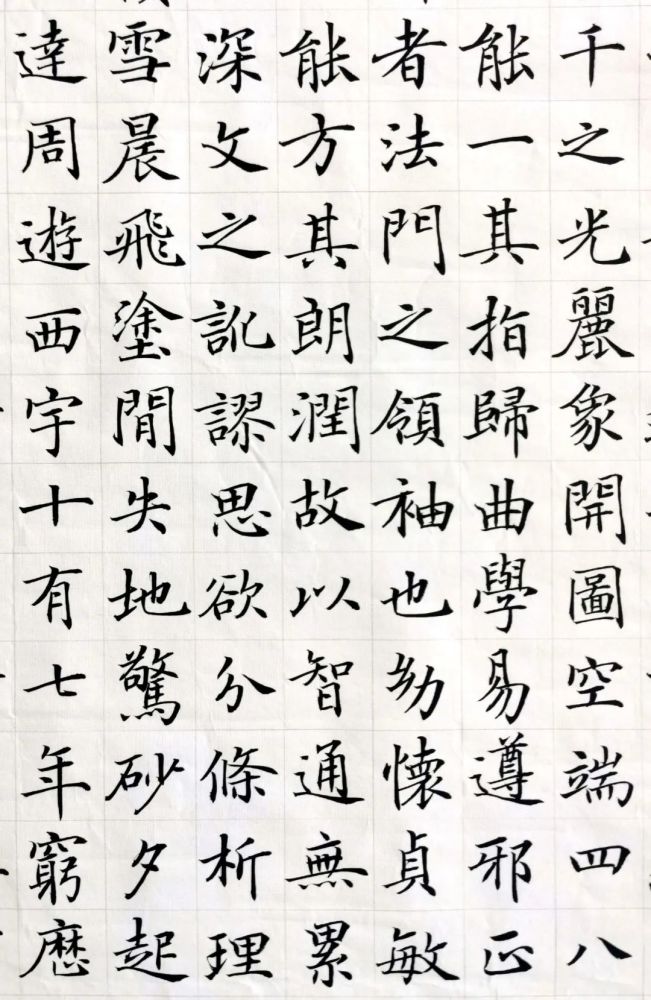 千之光麗象開圖空端四八
能一其指歸曲學易遵邪正
者法門之領袖也幼懷貞敏
能方其朗潤故以智通無累
深文之訛謬思欲分條析理
雪晨飛塗閒失地驚砂夕起
達周遊西宇十有七年窮歷